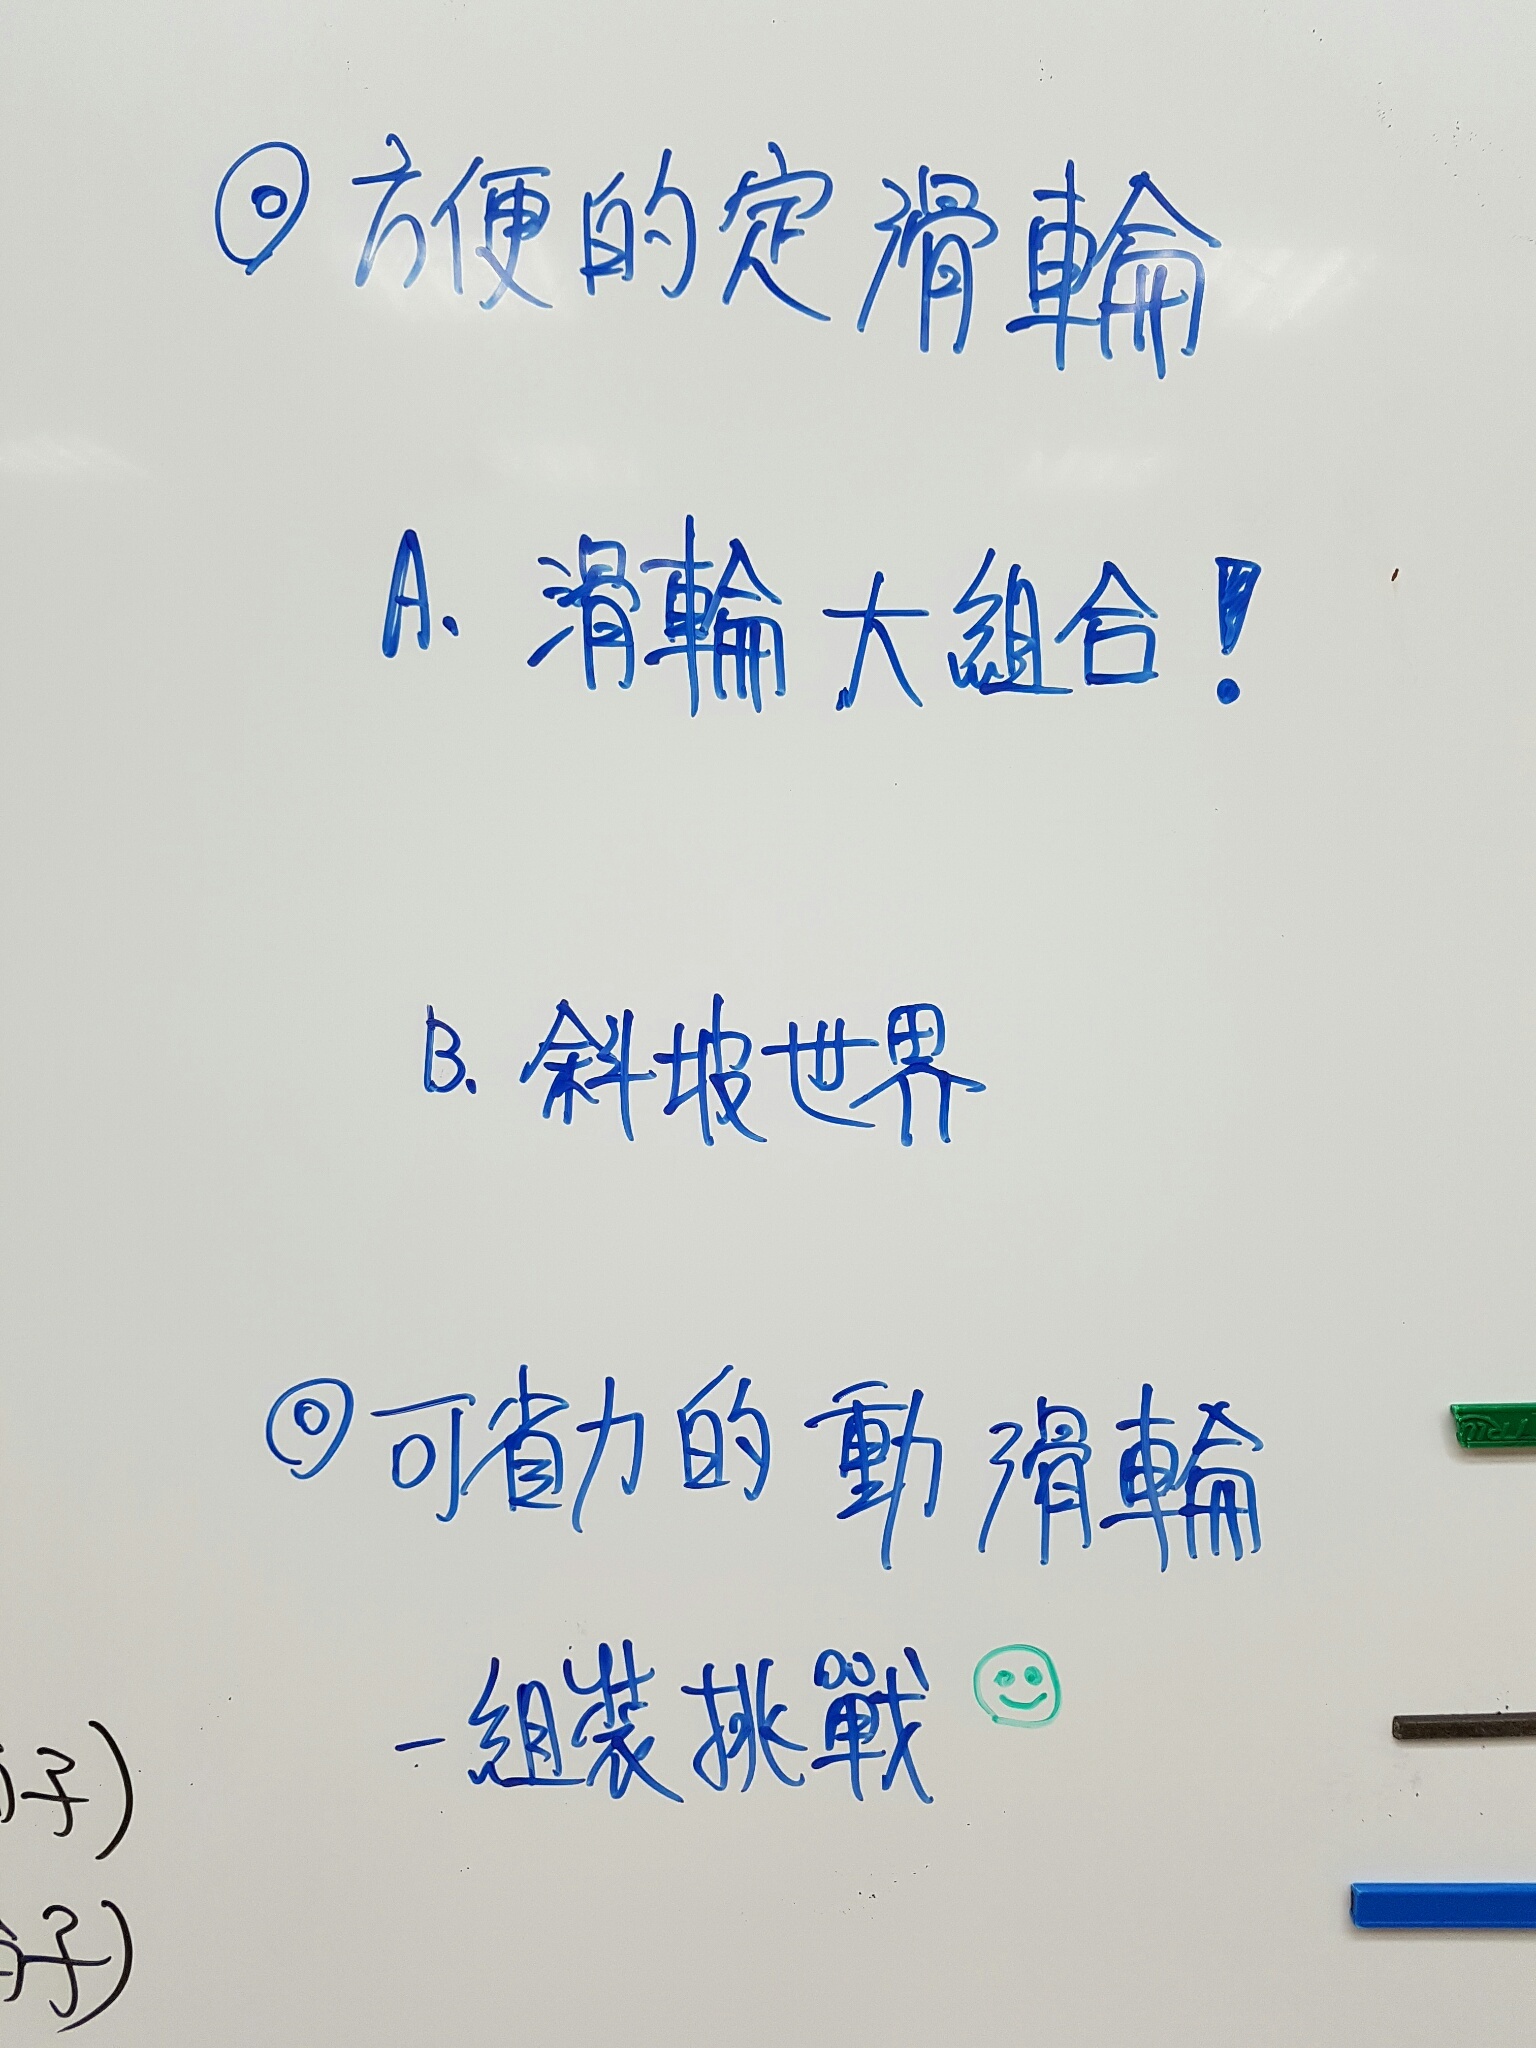 ◎方便的定滑輪
A. 滑輪大組合!
B. 斜坡世界
◎可省力的動滑輪
-組裝挑戰
子)
子)